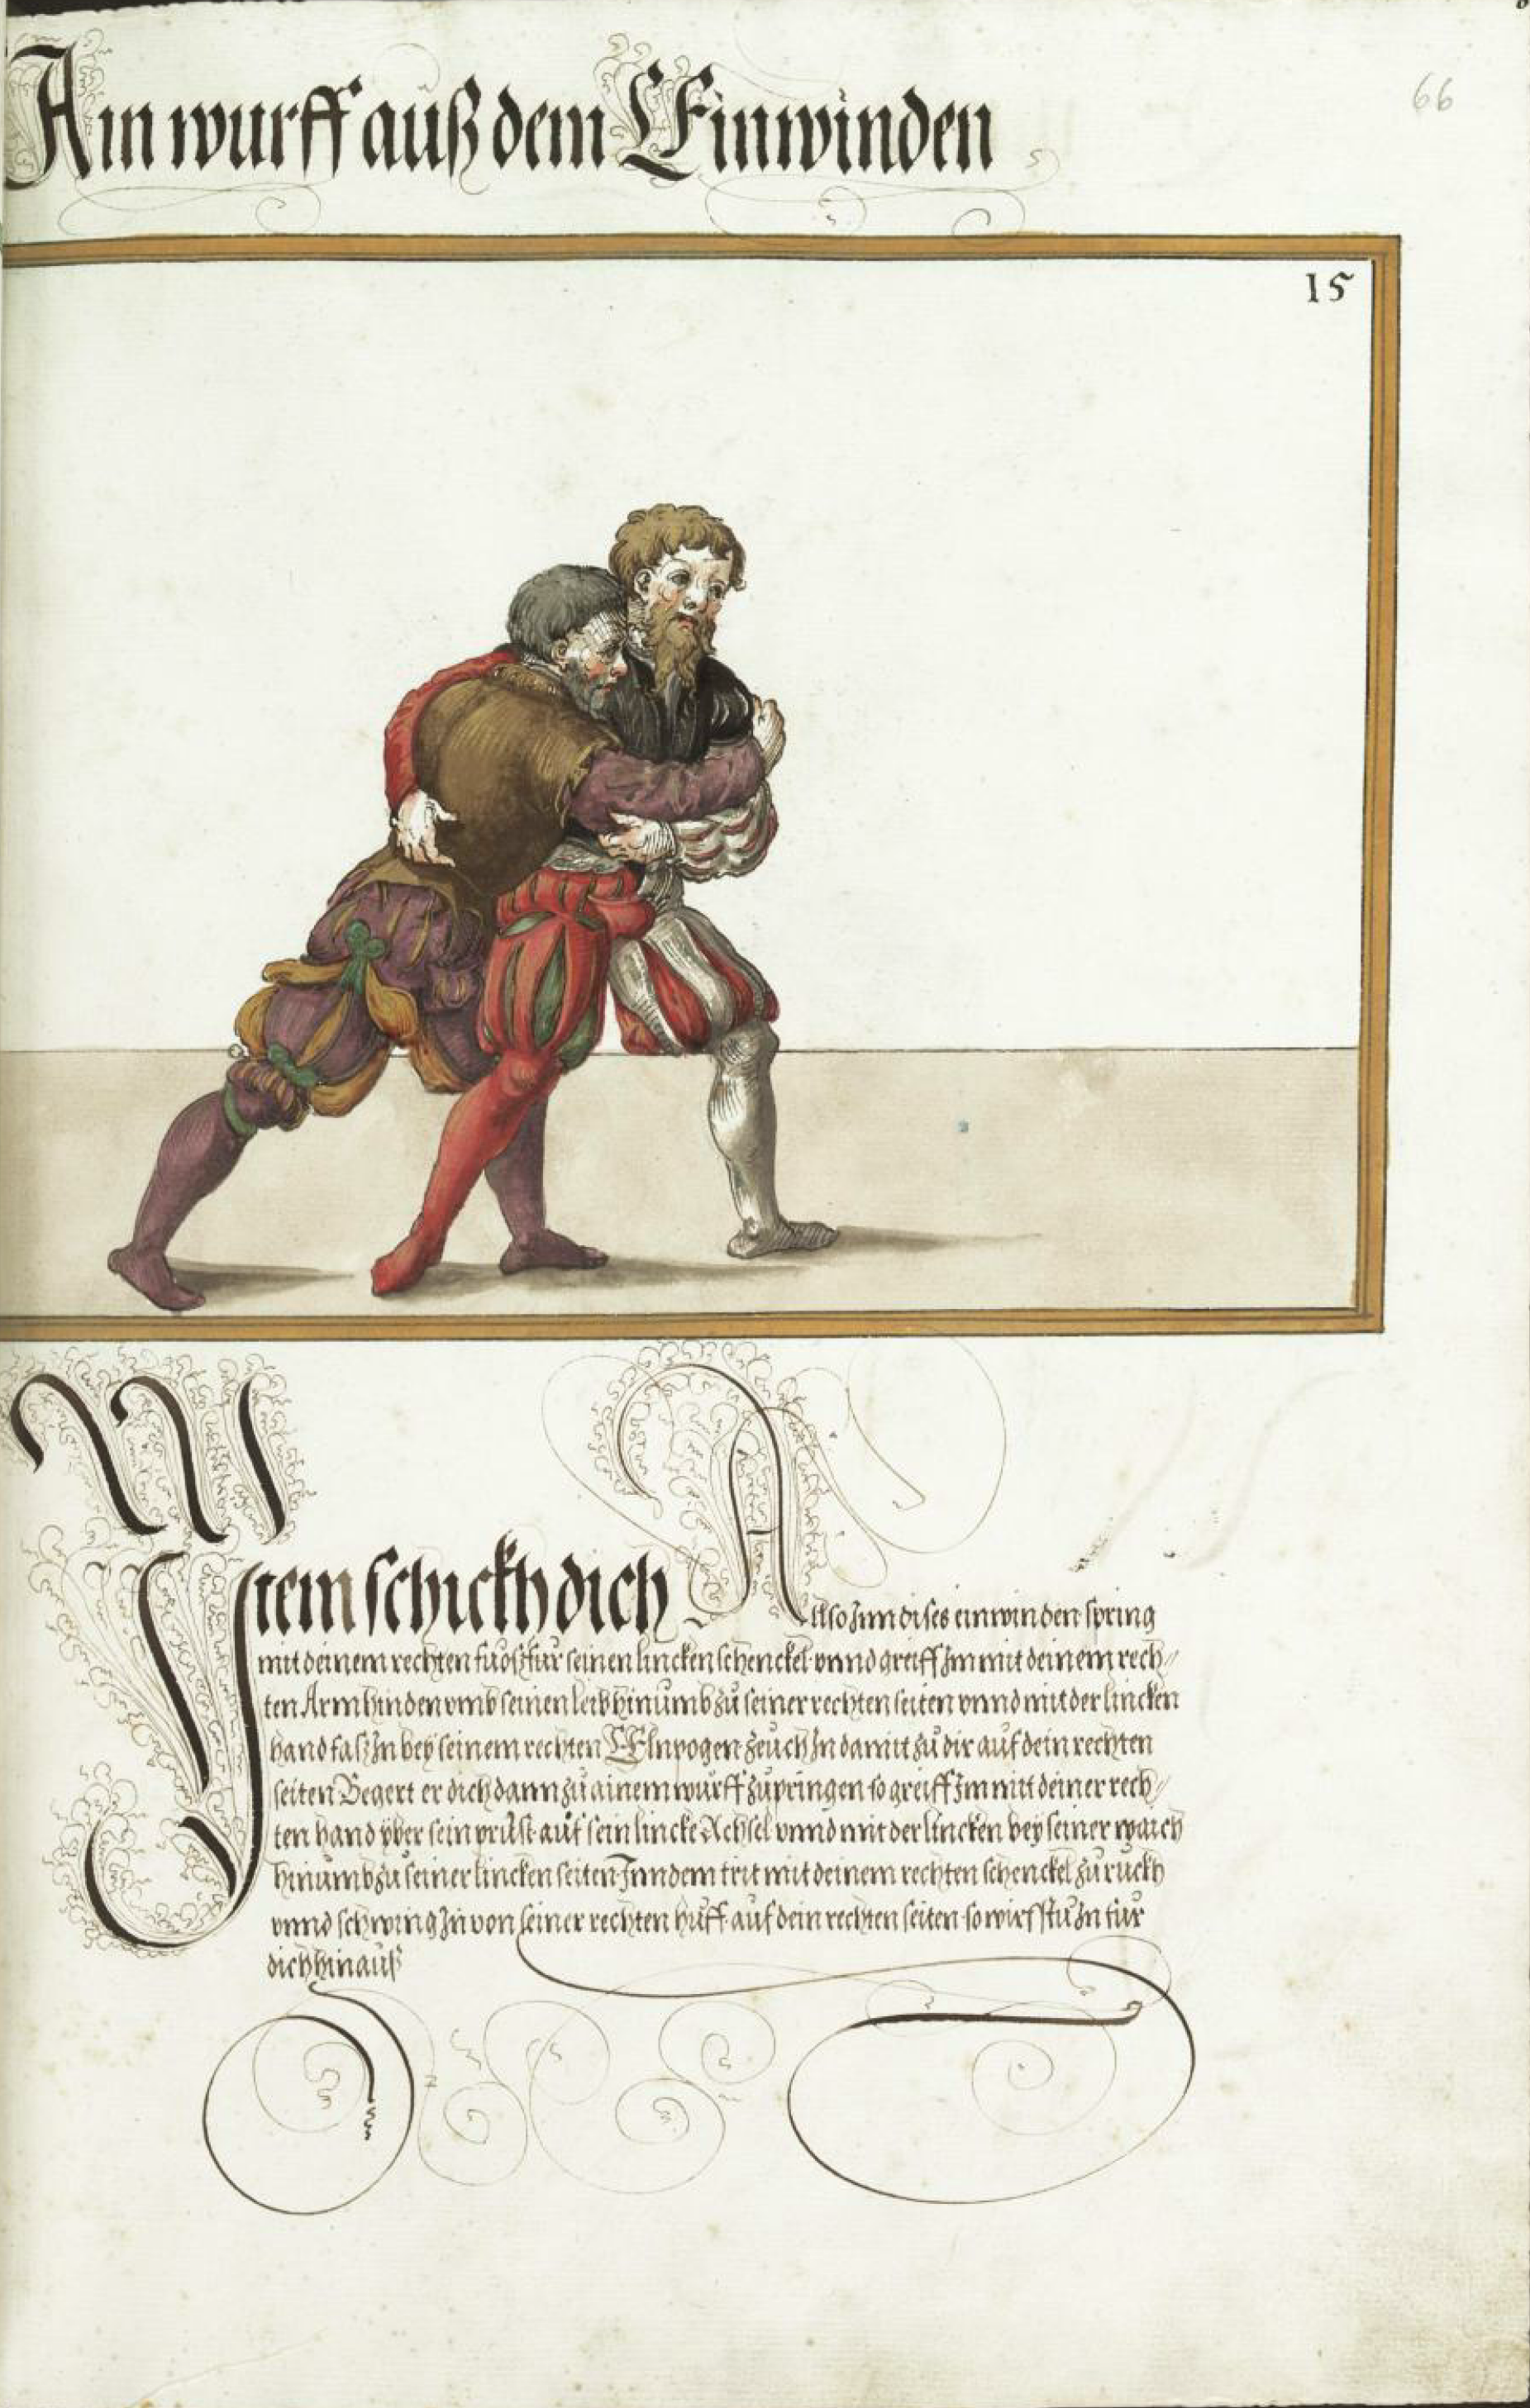 66
Ain wurff auß dem Einwinden
15
Item schickh dich Also Inn dises einwinden spring
mit deinem rechten fuoß für seinen lincken schenckel vnnd greiff Im mit deinem rech//
ten Arm hinden vmb seinen leib hinumb zů seiner rechten seiten vnnd mit der lincken
hand faß In bey seinem rechten Elnpogen zeuch In damit zů dir auf dein rechten
seiten Begert er dich dann zů ainem wurff zůpringen so greiff Im mit deiner rech//
ten hand yber sein prust auf sein lincke Achsel vnnd mit der lincken bey seiner waich
hinumb zů seiner lincken seiten Inn dem trit mit deinem rechten schenckel zů ruckh
vnnd schwing In von seiner rechten hůff auf dein rechten seiten so wirfstu In für
dich hinauß